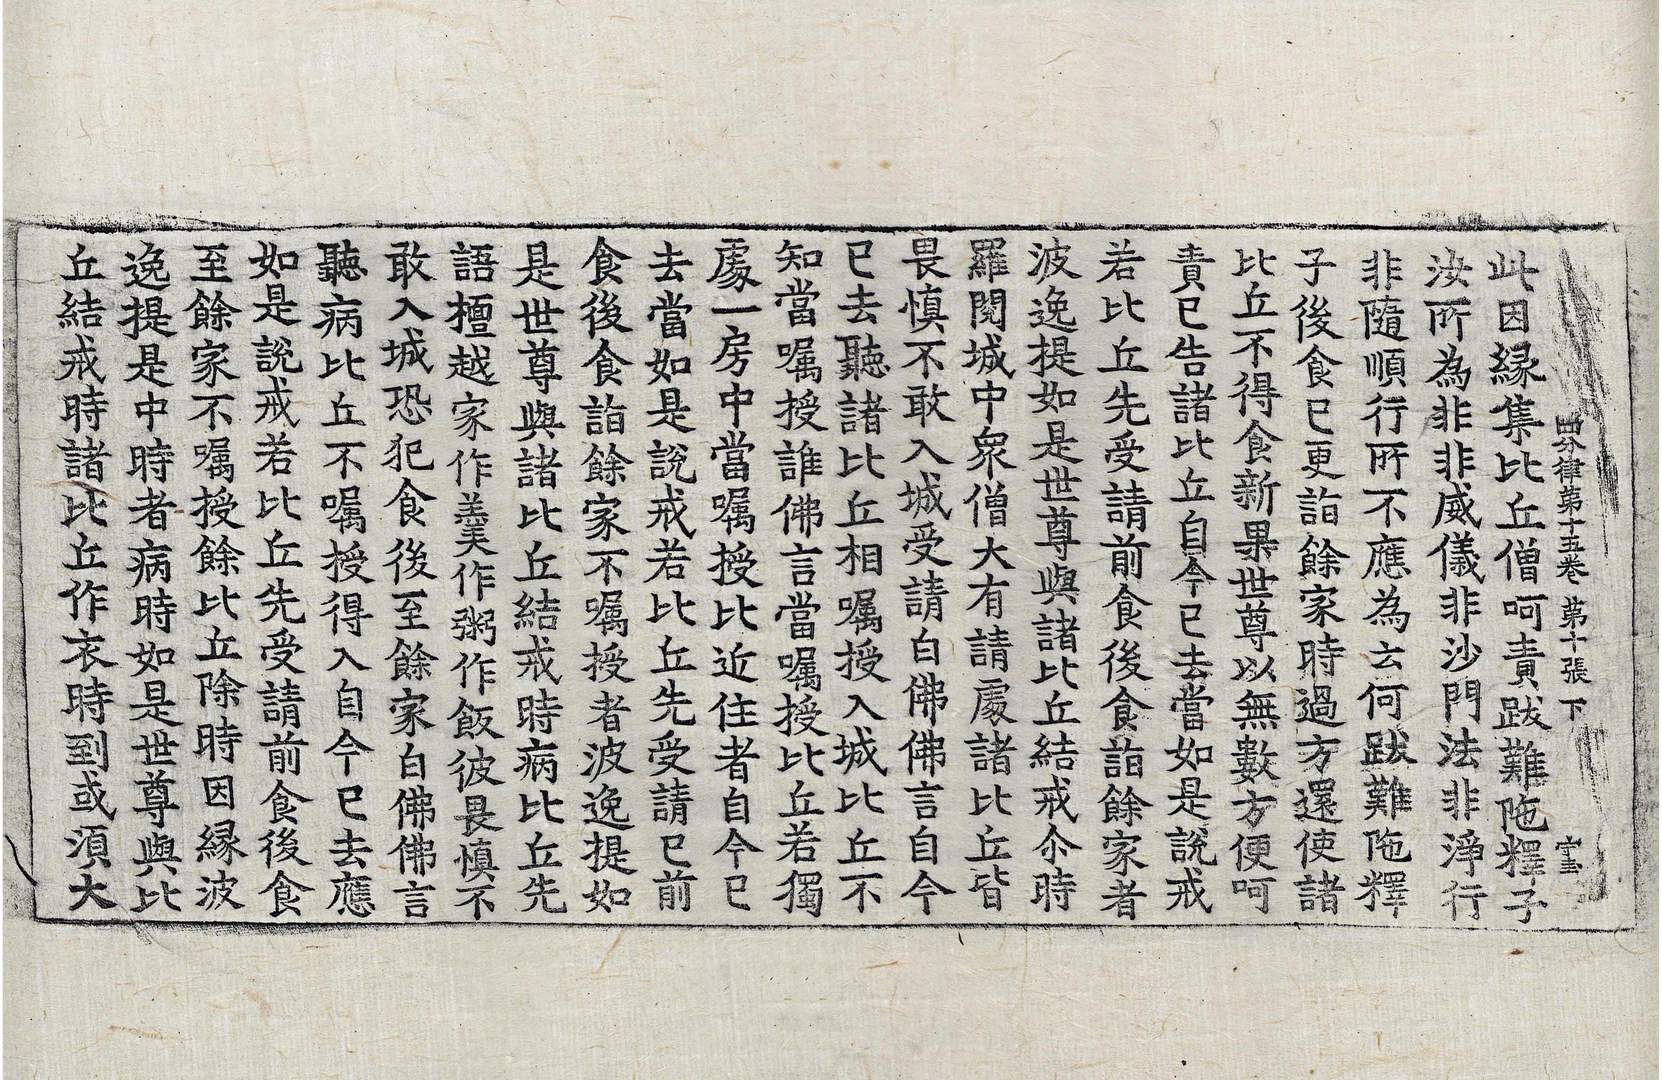 四分律第十五卷 第十張 下
此因緣集比丘僧呵責跋難陁釋子
汝所為非非威儀非沙門法非淨行
非隨順行所不應為云何跋難陁釋
子後食已更詣餘家時過方還使諸
比丘不得食新果世尊以無數方便呵
責已告諸比丘自今已去當如是說戒
若比丘先受請前食後食詣餘家者
波逸提如是世尊與諸比丘結戒尒時
羅閱城中衆僧大有請處諸比丘皆
畏慎不敢入城受請白佛佛言自今
已去聽諸比丘相囑授入城比丘不
知當囑授誰佛言當囑授比丘若獨
處一房中當囑授比近住者自今已
去當如是說戒若比丘先受請已前
食後食詣餘家不囑授者波逸提如
是世尊與諸比丘結戒時病比丘先
語檀越家作羹作粥作飯彼畏慎不
敢入城恐犯食後至餘家白佛佛言
聽病比丘不囑授得入自今已去應
如是說戒若比丘先受請前食後食
至餘家不囑授餘比丘除時因緣波
逸提是中時者病時如是世尊與比
丘結戒時諸比丘作衣時到或湏大